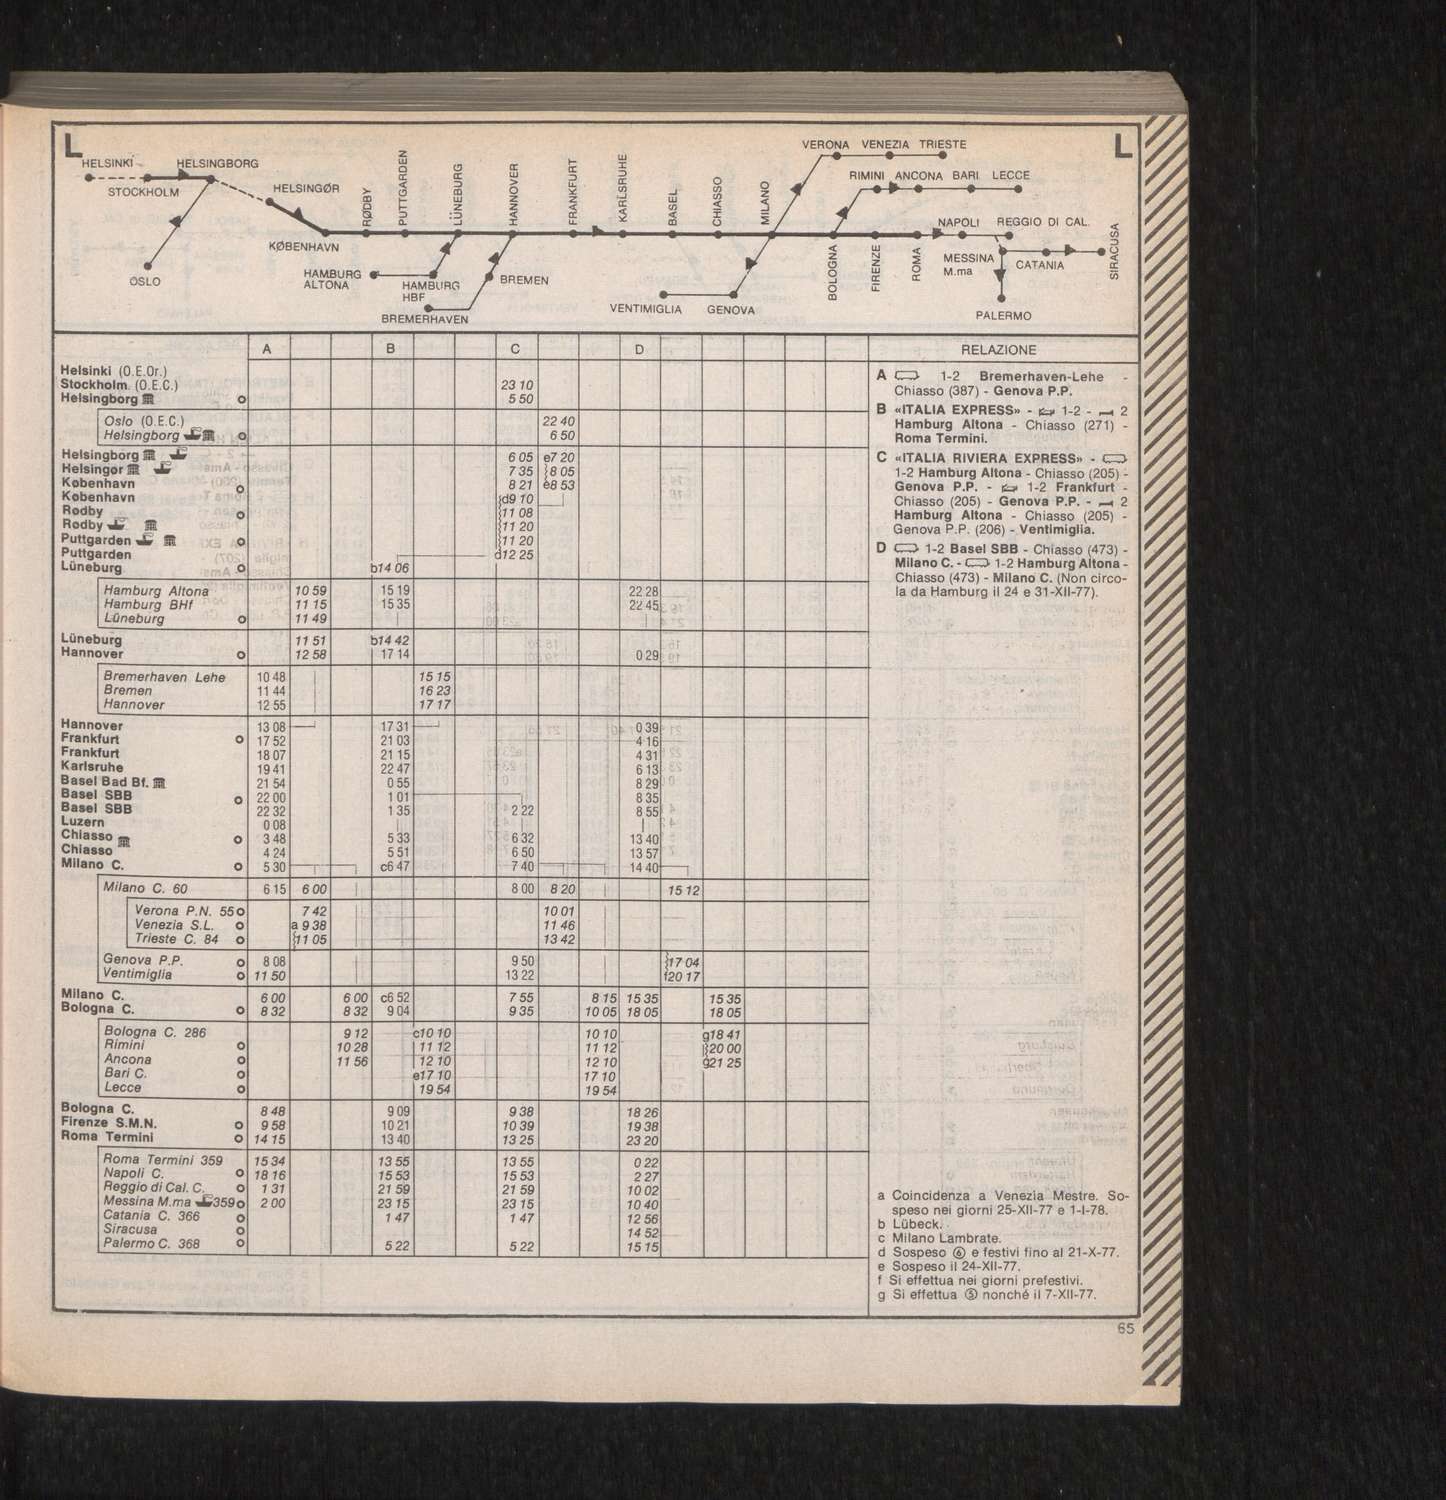 L L
HELSINKI HELSINGBORG
STOCKHOLM
HELSINGØR
OSLO
KØBENHAVN
RØDBY
PUTTGARDEN
LÜNEBURG
HANNOVER
FRANKFURT
KARLSRUHE
BASEL
CHIASSO
MILANO
HAMBURG ALTONA
HAMBURG HBF
BREMEN
BREMERHAVEN
VERONA VENEZIA TRIESTE
RIMINI ANCONA BARI LECCE
NAPOLI REGGIO DI CAL.
VENTIMIGLIA GENOVA
BOLOGNA
FIRENZE
ROMA
MESSINA M.ma
CATANIA
SIRACUSA
PALERMO
A B C D RELAZIONE
Helsinki (O.E.Or.)
Stockholm (O.E.C.) 23 10
Helsingborg 5 50
Oslo (O.E.C.) 22 40
Helsingborg 6 50
Helsingborg 6 05 e7 20
Helsingør 7 35 8 05
København 8 21 e8 53
København d9 10
Rødby 11 08
Rødby 11 20
Puttgarden 11 20
Puttgarden d12 25
Lüneburg b14 06
Hamburg Altona 10 59 15 19 22 28
Hamburg BHf 11 15 15 35 22 45
Lüneburg 11 49
Lüneburg 11 51 b14 42
Hannover 12 58 17 14 0 29
Bremerhaven Lehe 10 48 15 15
Bremen 11 44 16 23
Hannover 12 55 17 17
Hannover 13 08 17 31 0 39
Frankfurt 17 52 21 03 4 16
Frankfurt 18 07 21 15 4 31
Karlsruhe 19 41 22 47 6 13
Basel Bad Bf. 21 54 0 55 8 29
Basel SBB 22 00 1 01 8 35
Basel SBB 22 32 1 35 2 22 8 55
Luzern 0 08
Chiasso 3 48 5 33 6 32 13 40
Chiasso 4 24 5 51 6 50 13 57
Milano C. 5 30 c6 47 7 40 14 40
Milano C. 60 6 15 6 00 8 00 8 20 15 12
Verona P.N. 55 7 42 10 01
Venezia S.L. a 9 38 11 46
Trieste C. 84 11 05 13 42
Genova P.P. 8 08 9 50 17 04
Ventimiglia 11 50 13 22 f20 17
Milano C. 6 00 6 00 c6 52 7 55 8 15 15 35 15 35
Bologna C. 8 32 8 32 9 04 9 35 10 05 18 05 18 05
Bologna C. 286 9 12 c10 10 10 10 g18 41
Rimini 10 28 11 12 11 12 20 00
Ancona 11 56 12 10 12 10 g21 25
Bari C. e17 10 17 10
Lecce 19 54 19 54
Bologna C. 8 48 9 09 9 38 18 26
Firenze S.M.N. 9 58 10 21 10 39 19 38
Roma Termini 14 15 13 40 13 25 23 20
Roma Termini 359 15 34 13 55 13 55 0 22
Napoli C. 18 16 15 53 15 53 2 27
Reggio di Cal. C. 1 31 21 59 21 59 10 02
Messina M.ma 359 2 00 23 15 23 15 10 40
Catania C. 366 1 47 1 47 12 56
Siracusa 14 52
Palermo C. 368 5 22 5 22 15 15
A 1-2 Bremerhaven-Lehe -
Chiasso (387) - Genova P.P.
B «ITALIA EXPRESS» - 1-2 - 2
Hamburg Altona - Chiasso (271) -
Roma Termini.
C «ITALIA RIVIERA EXPRESS» -
1-2 Hamburg Altona - Chiasso (205) -
Genova P.P. - 1-2 Frankfurt -
Chiasso (205) - Genova P.P. - 2
Hamburg Altona - Chiasso (205) -
Genova P.P. (206) - Ventimiglia.
D 1-2 Basel SBB - Chiasso (473) -
Milano C. - 1-2 Hamburg Altona -
Chiasso (473) - Milano C. (Non circo-
la da Hamburg il 24 e 31-XII-77).
a Coincidenza a Venezia Mestre. So-
speso nei giorni 25-XII-77 e 1-I-78.
b Lübeck.
c Milano Lambrate.
d Sospeso ⑥ e festivi fino al 21-X-77.
e Sospeso il 24-XII-77.
f Si effettua nei giorni prefestivi.
g Si effettua ⑤ nonché il 7-XII-77.
65